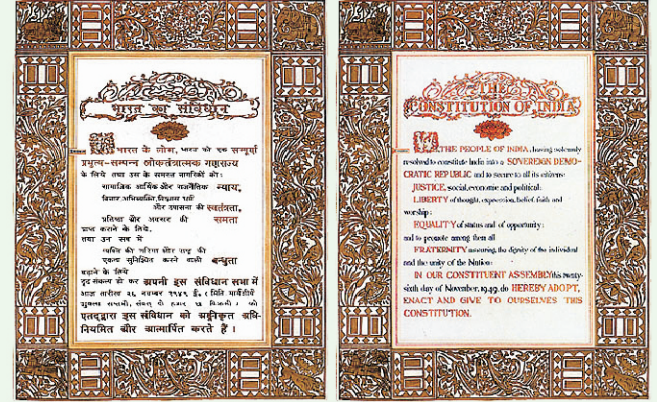 भारत का संविधान
हम भारत के लोग, भारत को एक सम्पूर्ण
प्रभुत्व-सम्पन्न लोकतंत्रात्मक गणराज्य
के लिये तथा उस के समस्त नागरिकों को:
सामाजिक आर्थिक और राजनैतिक न्याय,
विचार, अभिव्यक्ति, विश्वास धर्म
और उपासना की स्वतंत्रता,
प्रतिष्ठा और अवसर की समता
प्राप्त कराने के लिये,
तथा उन सब में
व्यक्ति की गरिमा और राष्ट्र की
एकता सुनिश्चित करने वाली बन्धुता
बढ़ाने के लिये
दृढ़ संकल्प हो कर अपनी इस संविधान सभा में
आज तारीख २६ नवम्बर १९४९ ई. (मिति मार्गशीर्ष
शुक्ला सप्तमी, संवत् दो हजार छः विक्रमी) को
एतद्द्वारा इस संविधान को अङ्गीकृत अधि-
नियमित और आत्मार्पित करते हैं।
THE
CONSTITUTION OF INDIA
WE, THE PEOPLE OF INDIA, having solemnly
resolved to constitute India into a SOVEREIGN DEMO-
CRATIC REPUBLIC and to secure to all its citizens:
JUSTICE, social, economic and political;
LIBERTY of thought, expression, belief, faith and
worship;
EQUALITY of status and of opportunity;
and to promote among them all
FRATERNITY assuring the dignity of the individual
and the unity of the Nation;
IN OUR CONSTITUENT ASSEMBLY this twenty-
sixth day of November, 1949, do HEREBY ADOPT,
ENACT AND GIVE TO OURSELVES THIS
CONSTITUTION.